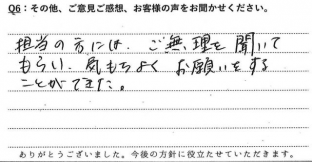 Q6：その他、ご意見ご感想、お客様の声をお聞かせください。
担当の方には、ご無理を聞いて
もらい、気もちよく お願いをする
ことができた。
ありがとうございました。今後の方針に役立たせていただきます。